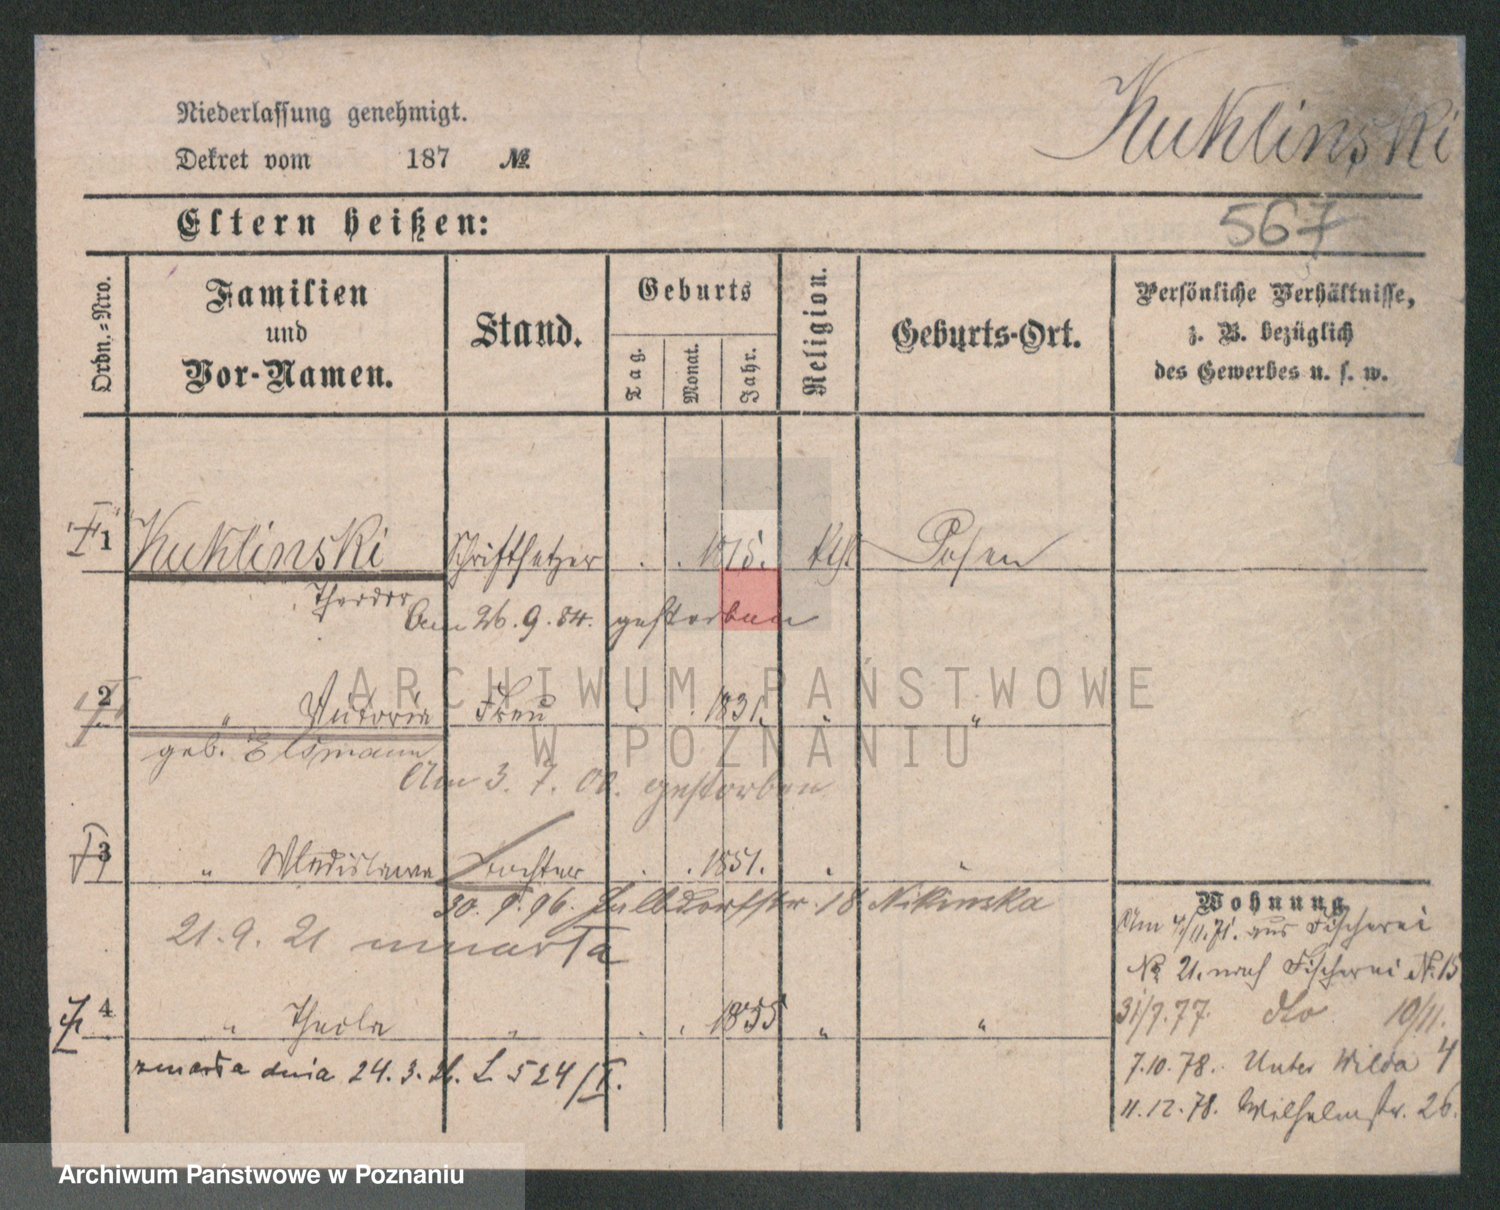 Niederlassung genehmigt.
Dekret vom 187 №
Kuklinski
Eltern heißen:
567
Ordn.=Nro.
Familien
und
Vor-Namen.
Stand.
Geburts
Tag.
Monat.
Jahr.
Religion.
Geburts-Ort.
Persönliche Verhältnisse,
z. B. bezüglich
des Gewerbes u. s. w.
1 Kuklinski Schriftsetzer . . Posen
Theodor
Am 26. 9. 84. gestorben
ARCHIWUM PAŃSTWOWE
W POZNANIU
2 " Frau . . 1831. " "
geb. Elsmann
Am 3. 7. 00. gestorben
3 " Wladislawa Tochter . . 1851. " "
30. 9. 96. 18 Nikinska
21. 9. 21 umarła
Wohnung.
Am 4/11.71. aus Fischerei
№ 21. nach Fischerei №. 15
4 " Thecla " . . 1855 " "
31/7.77. dto 10/11.
zmarła dnia 24. 3. L 524/II.
7.10.78. Unter Wilda 4
11.12.78. Wilhelmstr. 26.
Archiwum Państwowe w Poznaniu